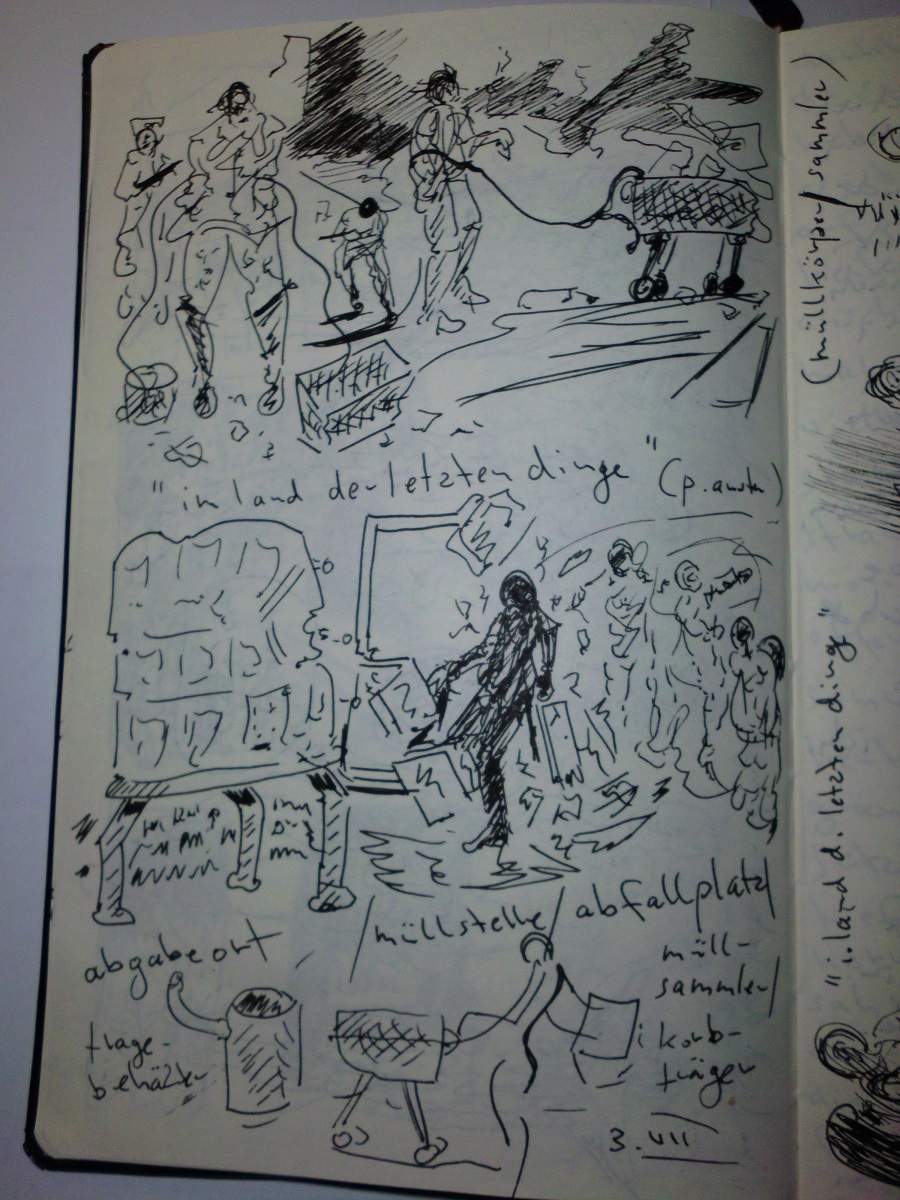 "im land der letzten dinge" (p. auster)
abgabeort / müllstelle / abfallplatz
müll-
sammler/
korb-
träger
trage-
behälter
3. VII
(müllkörper/sammler)
"i. land d. letzten dinge"